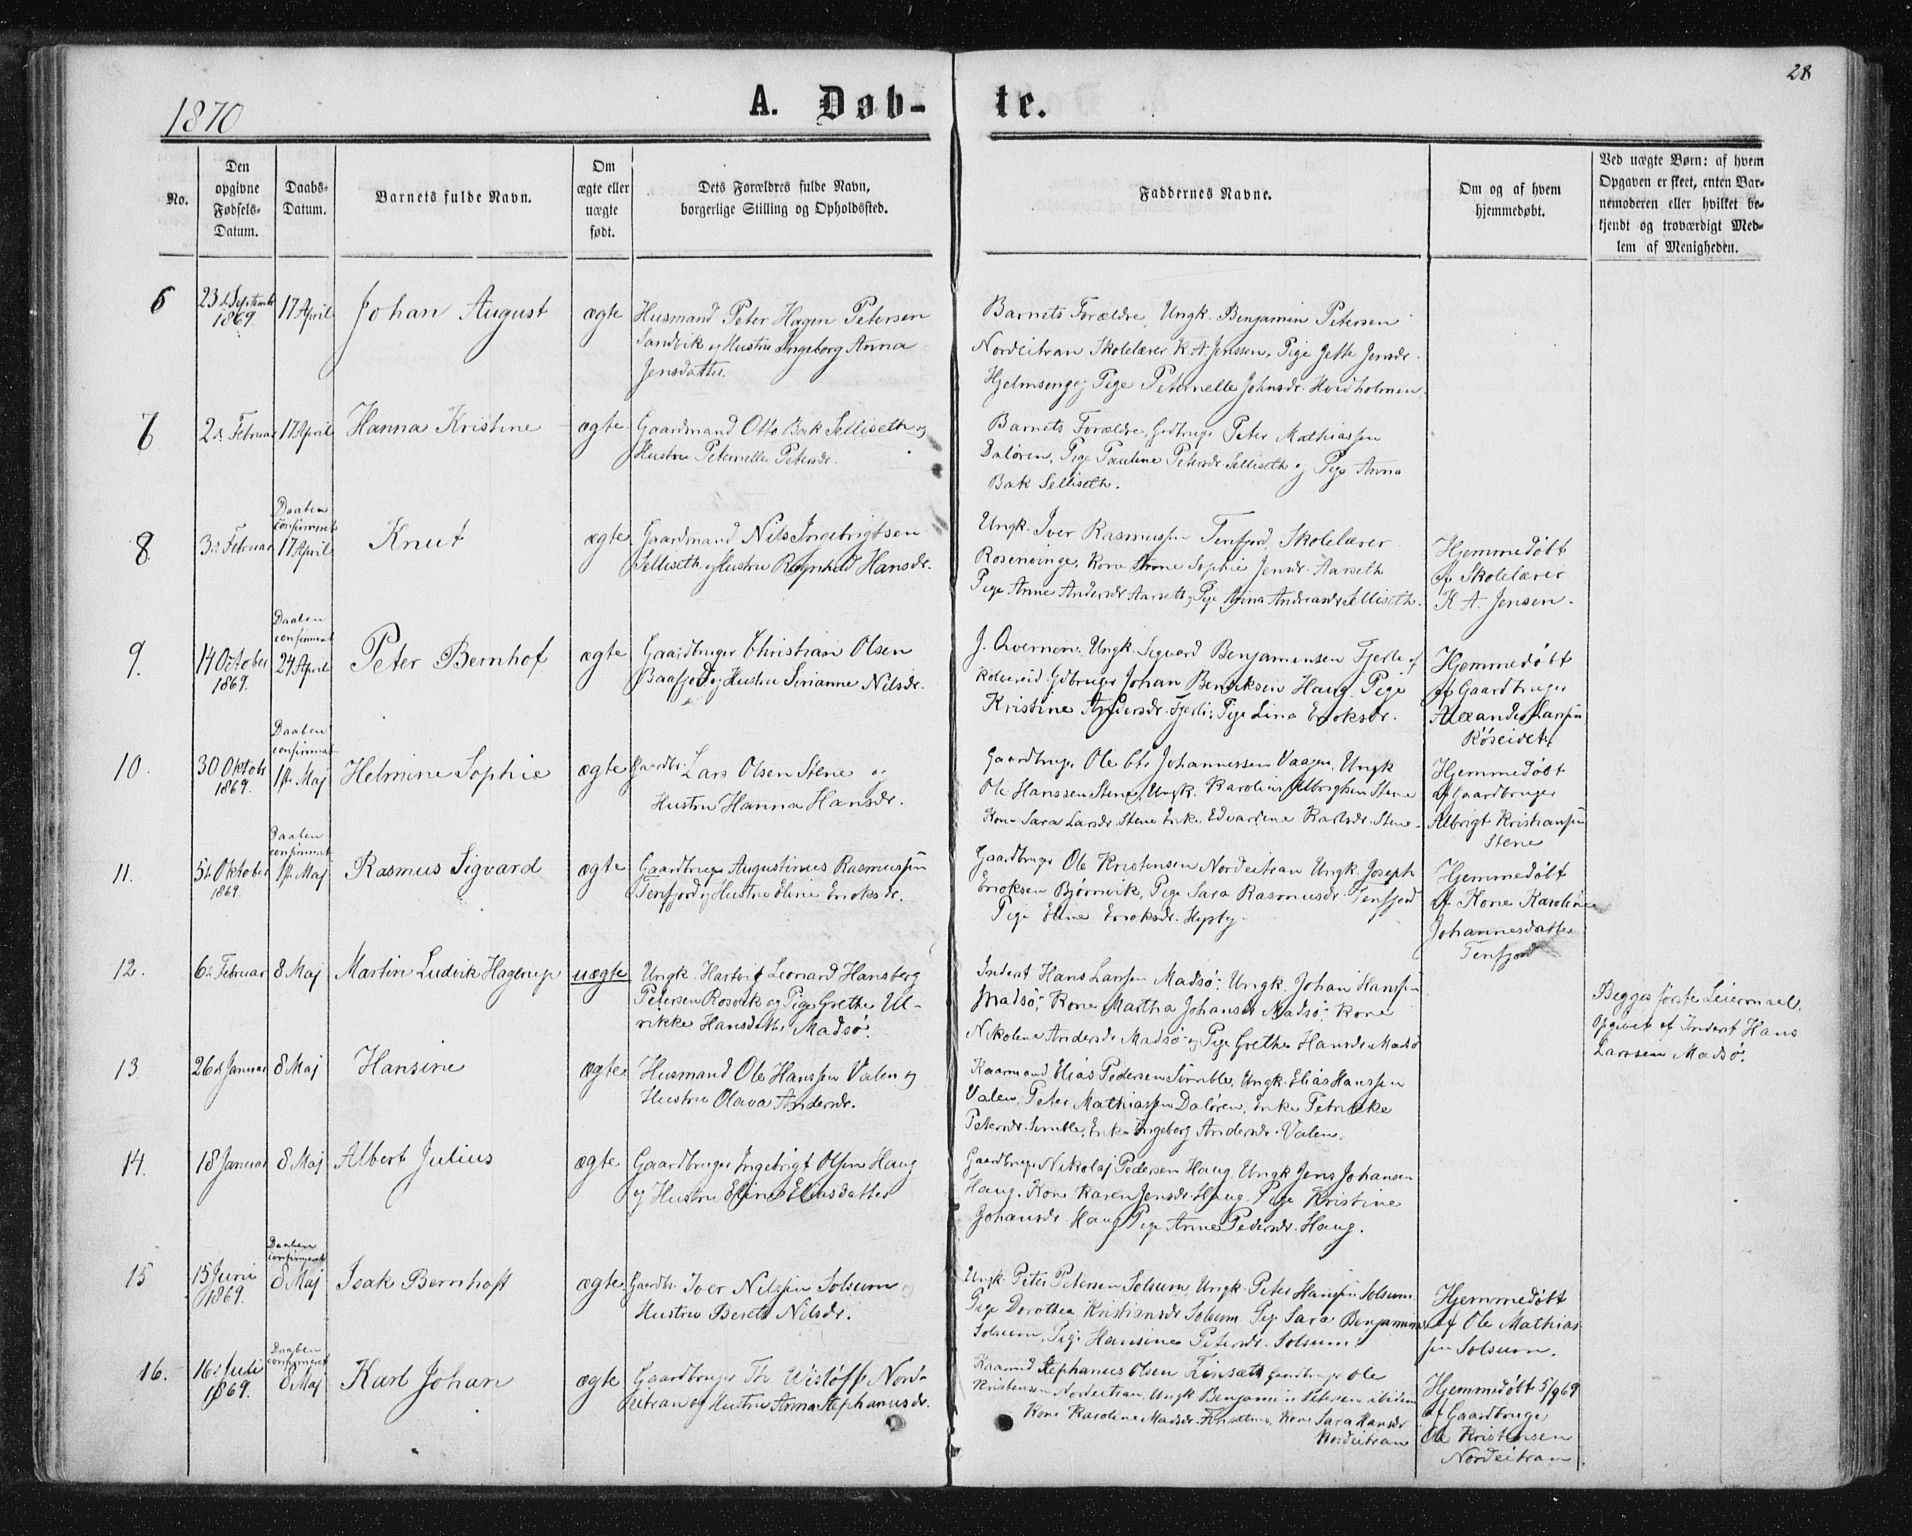 28
1870
A. Døb-
te.
No.
Den
opgivne
Fødsels-
Datum.
Daabs-
Datum.
Barnets fulde Navn.
Om
ægte eller
uægte
født.
Dets Forældres fulde Navn,
borgerlige Stilling og Opholdssted.
Faddernes Navne.
Om og af hvem
hjemmedøbt.
Ved uægte Børn: af hvem
Opgaven er skeet, enten Bar-
nemoderen eller hvilket be-
kjendt og troværdigt Med-
lem af Menigheden.
6
23d. Septembr
1869.
17 April
Johan August
ægte
Husmand Peter Hagen Petersen
Sandvik og Hustru Ingeborg Anna
Jensdatter.
Barnets Forældre, Ungk. Benjamin Petersen
Nordeitran Skolelærer K. A. Jenssen, Pige Jette Jensdr.
Hjelmseng og Pige Peternelle Johnsdr. Hvidholmen
2d. Februar
17 April
Hanna Kristine
ægte
Gaardmand Otto Bak Selliseth og
Hustru Peternelle Petersdr.
Barnets Forældre, Gdbruger Peter Mathiassen
Daløren, Pige Pauline Petersdr Selliseth og Pige Anna
Bak Selliseth.
8.
3d. Februar
Daaben
confirmeret
17 April
Knut
ægte
Gaardmand Nils Ingebrigtsen
Selliseth og Hustru Ragnhild Hansdr.
Ungk. Iver Rasmussen Tenfjord, Skolelærer
Rosenvinge, Kone Anne Sophie Jensdr. Aarseth
Pige Anne Andersdr Aarseth, Pige Anna Andreasdr Selliseth.
Hjemmedøbt
af Skolelærer
K A. Jensen.
9.
14 October
1869.
Daaben
confirmeret
24 April
Peter Bernhof
ægte
Gaardbruger Christian Olsen
Baafjord og Hustru Sirianne Nilsdr.
J. Qvernen, Ungk. Sigvard Benjaminsen Fjerli og
Kolvereid. Gdbruger Johan Bendiksen Haug. Pige
Kristine Andersdr. Fjerli; Pige Lina Eriksdr.
Hjemmedøbt
af Gaardbruger
Alexander Larsen
Røseidet
10.
30 Oktobr
1869.
Daaben
confirmeret
1ste Maj
Helmine Sophie
ægte
Gaardbr. Lars Olsen Stene og
Hustru Hanna Hansdr.
Gaardbruger Ole Chr Johannessen Vaagen, Ungk
Ole Hanssen Stene, Ungk. Karolius Albrigtsen Stene
Kone Sara Larsdr. Stene Enke Edvardine Karlsdr. Stene.
Hjemmedøbt
af Gaardbruger
Albrigt Kristiansen
Stene
11.
5te Oktober
1869.
Daaben
confirmeret
1ste Maj
Rasmus Sigvard
ægte
Gaardbruger Augustinus Rasmussen
Tenfjord og Hustru Eline Eriksdr.
Gaardbruger Ole Kristensen Nordeitran Ungk. Joseph
Eriksen Bjørnvik, Pige Sara Rasmusdr. Tenfjord
Pige Eline Eriksdr.
Hjemmedøbt
af Kone Karoline
Johannesdatter
Tenfjord
12.
6te Februar
8 Maj
Martin Ludvik Hagerup
uægte
Ungk. Hartvig Leonard Hansberg
Petersen Rosvik og Pige Grethe Ul-
rikke Hansdatter Madsø.
Inderst Hans Larssen Madsø, Ungk. Johan Hanssen
Madsø, Kone Martha Johansdr Madsø, Kone
Nikoline Andersdr Madsø og Pige Grethe Hansdr Madsø
Begges første Leiermaal.
Opgivet af Inderst Hans
Larssen Madsø.
13
26de Januar
8 Maj
Hansine
ægte
Husmand Ole Hanssen Valen og
Hustru Olava Andersdr.
Kaarmand Elias Pedersen Simble, Ungk. Elias Hanssen
Valen, Peter Mathiassen Daløren, Enke Petrikke
Petersdr. Simble, Enke Ingeborg Andersdr. Valen.
14.
18 Januar
8 Maj
Albert Julius
ægte
Gaardbruger Ingebrigt Olsen Haug
og Hustru Eline Eliasdatter
Gaardbruger Nikolaj Pedersen Haug Ungk. Jens Johansen
Haug, Kone Karen Jensdr. Haug. Pige Kristine
Johansdr Haug Pige Anne Pedersdr. Haug.
15
15 Juni
1869.
Daaben
confirmeret
8 Maj
Isak Bernhoft
ægte
Gaardbr. Iver Nilssen Solsum og
Hustru Beret Nilsdr.
Ungk. Peter Petersen Solsum, Ungk. Peter Hansen Solsum.
Pige Dorothea Kristiansdr Solsum Pige Sara Benjaminsdr
Solsum, Pige Hansine Petersdr. Solsum.
Hjemmedøbt
af Ole Mathias-
sen Solsum.
16.
16de Juli
1869.
Daaben
confirmeret
8 Maj
Karl Johan
ægte
Gaardbruger Th. Wisløff Nord-
eitran og Hustru Anna Stephanusdr.
Kaarmd Stephanus Olsen Finsæth Gaardbruger Ole
Kristensen Nordeitran, Ungk Benjamin Petersen ibidem
Kone Karoline Madsdr. Finsethnes, Kone Sara Hansdr
Nordeitran
Hjemmedøbt 5/9 69
af Gaardbruger
Ole Kristensen
Nordeitran.